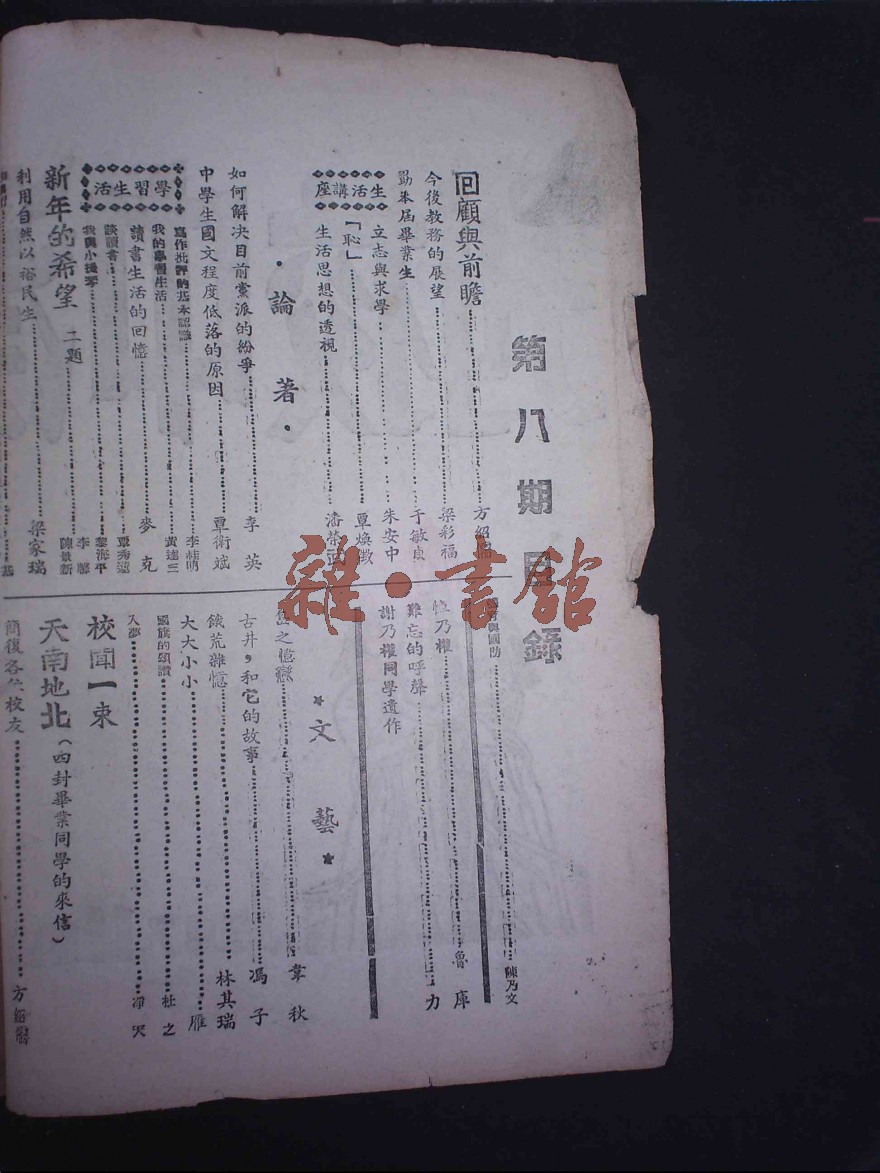 第八期目錄
回顧與前瞻……方紹
今後教務的展望……梁彩福
勖本屆畢業生……于敏貞
生活講座
立志與求學……朱安中
「恥」……覃煥徵
生活思想的透視……潘榮
·論著·
如何解决目前黨派的紛爭……李英
中學生國文程度低落的原因……覃衛斌
學習生活
寫作批評的基本認識……李桂明
我的學習生活……黃達三
讀書生活的回憶……麥克
談讀書……覃秀
我與小提琴……黎海平
新年的希望 二題……李 陳景新
利用自然以裕民生……梁家瑞
與國防……陳乃文
悼乃權……魯庫
難忘的呼聲……力
謝乃權同學遺作
★文藝★
之憶……韋秋
古井，和它的故事……馮子
餓荒雜憶……林其瑞
大大小小……雁
國旗的頌讚……杜之
入夢……淨天
校聞一束
天南地北（四封畢業同學的來信）
簡復各 校友……方紹
雜·書館